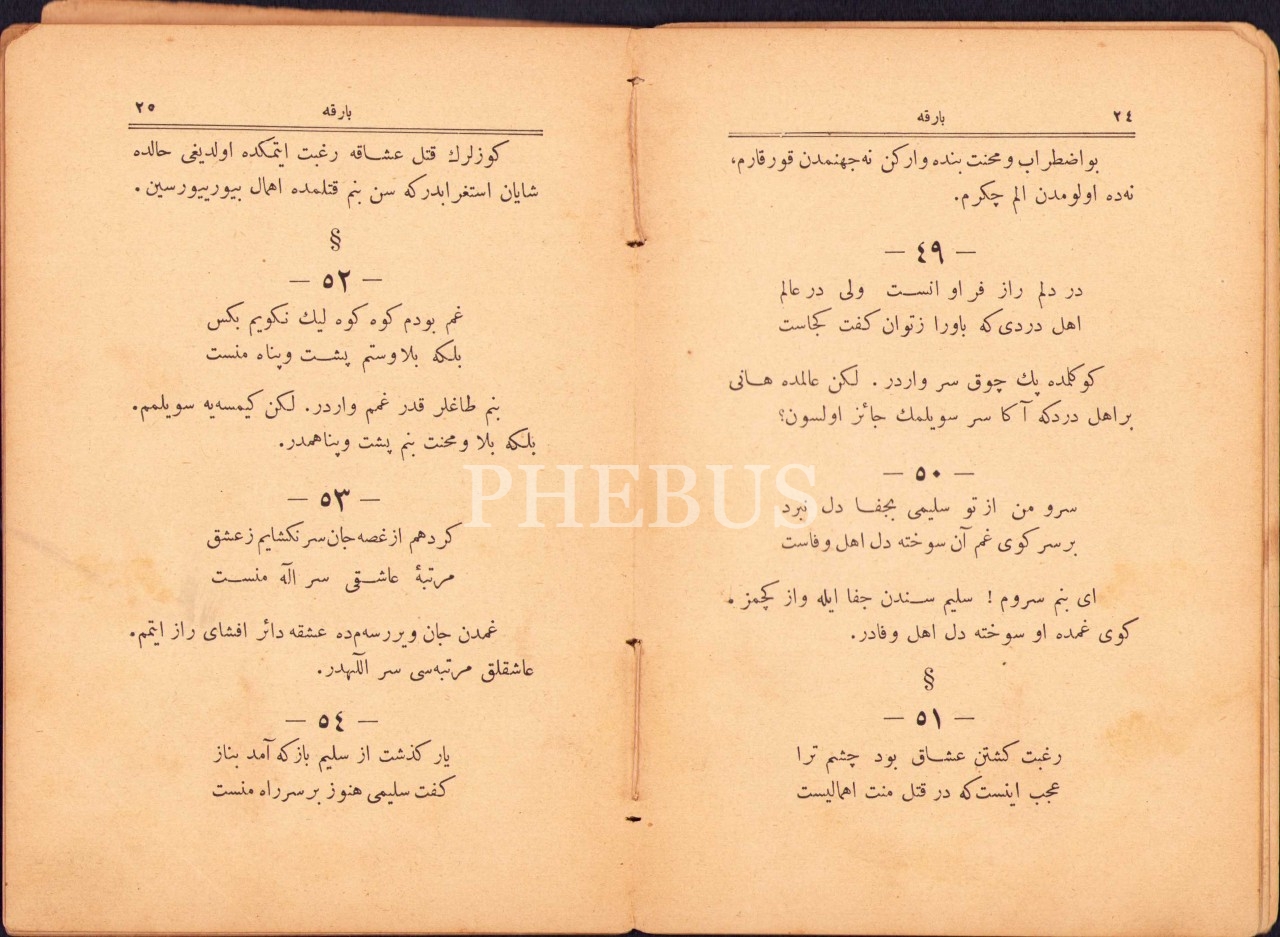 ٢٤
بارقه
بو اضطراب و محنت بنده واركن نه جهنمدن قورقارم،
نه ده اولومدن الم چكرم.
— ٤٩ —
در دلم راز فراوانست ولى در عالم
اهل دردى كه باورا زتوان كفت كجاست
كوكلمده پك چوق سر واردر. لكن عالمده هانى
بر اهل درد كه آكا سر سويلمك جائز اولسون؟
— ٥٠ —
سرو من از تو سليمى بجفا دل نبرد
بر سر كوى غم آن سوخته دل اهل وفاست
اى بنم سروم! سليم سندن جفا ايله واز كچمز.
كوى غمده او سوخته دل اهل وفادر.
§
— ٥١ —
رغبت كشتن عشاق بود چشم ترا
عجب اينست كه در قتل منت اهماليست
٢٥
بارقه
كوزلرك قتل عشاقه رغبت ايتمكده اولديغى حالده
شايان استغرابدر كه سن بنم قتلمده اهمال بيورييورسين.
§
— ٥٢ —
غم بودم كوه كوه ليك نكويم بكس
بلكه بلا وستم پشت وپناه منست
بنم طاغلر قدر غمم واردر. لكن كيمسه‌يه سويلمم.
بلكه بلا ومحنت بنم پشت وپناهمدر.
— ٥٣ —
كردهم از غصه جان سر نكشايم ز عشق
مرتبهٔ عاشقى سر اله منست
غمدن جان ويررسه‌م ده عشقه دائر افشاى راز ايتمم.
عاشقلق مرتبه‌سى سر اللهدر.
— ٥٤ —
يار كذشت از سليم باز كه آمد بناز
كفت سليمى هنوز بر سر راه منست
PHEBUS